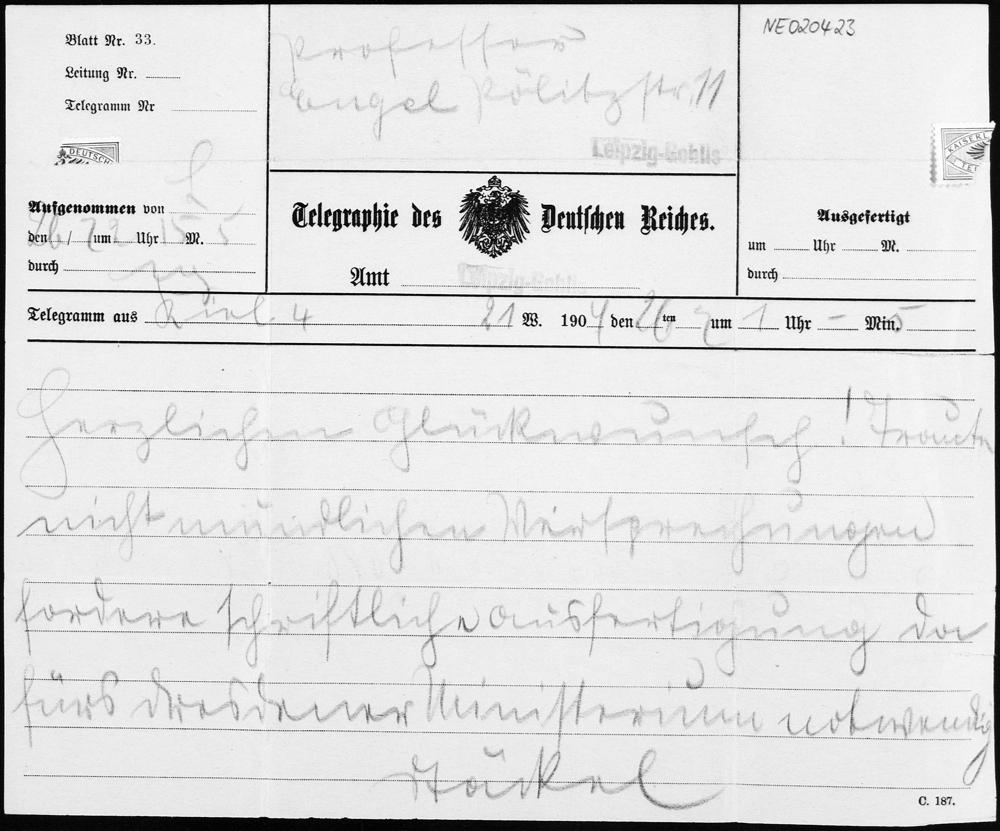 Blatt Nr. 33.
Leitung Nr.
Telegramm Nr
Professor
Engel Pölitzstr. 11
Leipzig-Gohlis
NE020423
DEUTSCH
KAISERL.
TEL
L
Aufgenommen von
den 26/7 um 2 Uhr 15 M.
durch
Telegraphie des Deutschen Reiches.
Amt Leipzig-Gohlis
Ausgefertigt
um Uhr M.
durch
Telegramm aus Kiel 4 21 W. 1904 den 26ten 7 um 1 Uhr - Min. 5
Herzlichen Glückwunsch! Traue
nicht mündlichen Versprechungen
fordere schriftliche Ausfertigung da
fürs dresdener Ministerium notwendig
Stäckel
C. 187.